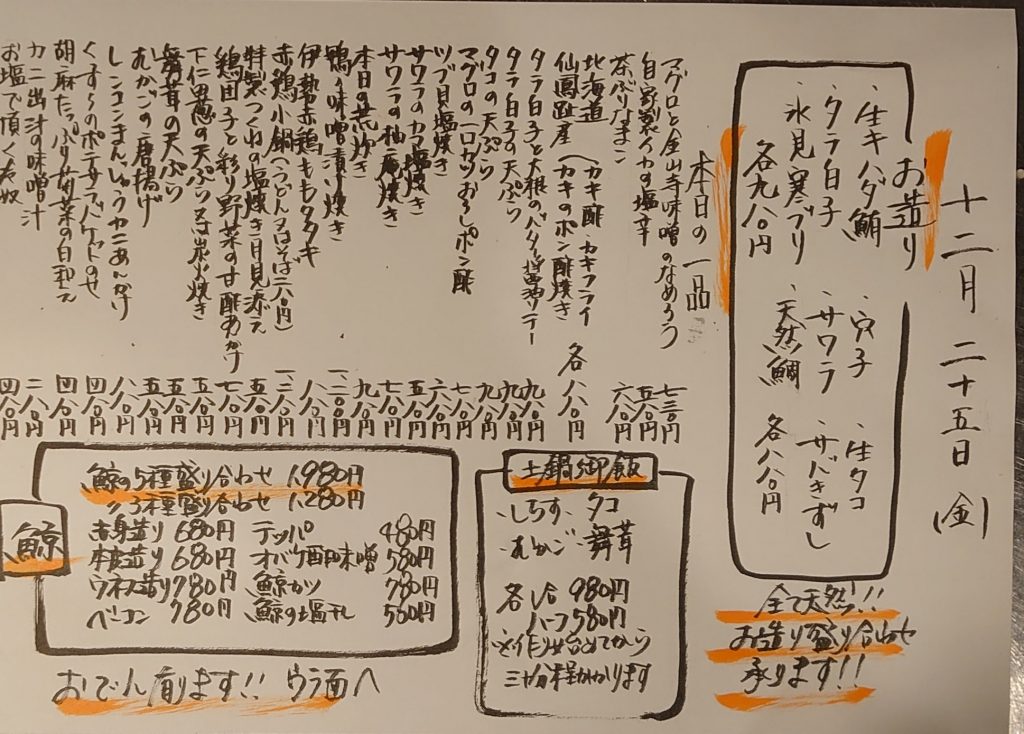 十二月二十五日(金)
お造り
・生キハダ鮪
・タラ白子
・氷見寒ブリ
各九八〇円
・穴子
・サワラ
・天然鯛
・生タコ
・サバきずし
各八八〇円
全て天然!!
お造り盛り合わせ
承ります!!
本日の一品
マグロと金山寺味噌のなめろう 七三〇円
自家製イカの塩辛 五八〇円
茶ぶりなまこ 六八〇円
北海道
仙鳳趾産(カキ酢 カキフライ
カキのポン酢焼き 各八八〇円
タラ白子と大根のバター醤油ソテー 九八〇円
タラ白子の天ぷら 九八〇円
タコの天ぷら 九八〇円
マグロの一口カツおろしポン酢 七八〇円
ツブ貝塩焼き 六八〇円
サワラのカマ塩焼き 五八〇円
サワラの柚庵焼き 七八〇円
本日の荒炊き 九八〇円
鴨の味噌漬け焼き 一、二〇〇円
伊勢赤鶏ももタタキ 八八〇円
赤鶏小鍋(うどん又はそば二八〇円) 一、二八〇円
特製つくねの塩焼き月見添え 五八〇円
鶏団子と彩り野菜の甘酢あんかけ 七八〇円
下仁田葱の天ぷら又は炭火焼き 五八〇円
舞茸の天ぷら 五八〇円
むかごの唐揚げ 五八〇円
レンコンまんじゅうカニあんかけ 八八〇円
くずし のポテサラバケットのせ 四八〇円
胡麻たっぷり菊菜の白和え 四八〇円
カニ出汁の味噌汁 二八〇円
お塩で頂く 奴 四八〇円
土鍋御飯
・しらす ・タコ
・むかご ・舞茸
各一合 980円
ハーフ580円
※作り始めてから
三十分程かかります
鯨
鯨の5種盛り合わせ 1,980円
〃3種盛り合わせ 1,280円
赤身造り 680円 テッパ 480円
本皮造り 680円 オバケ酢味噌 580円
ウネス造り 780円 鯨カツ 780円
ベーコン 780円 鯨の塩干し 500円
おでん有ります!! ウラ面へ